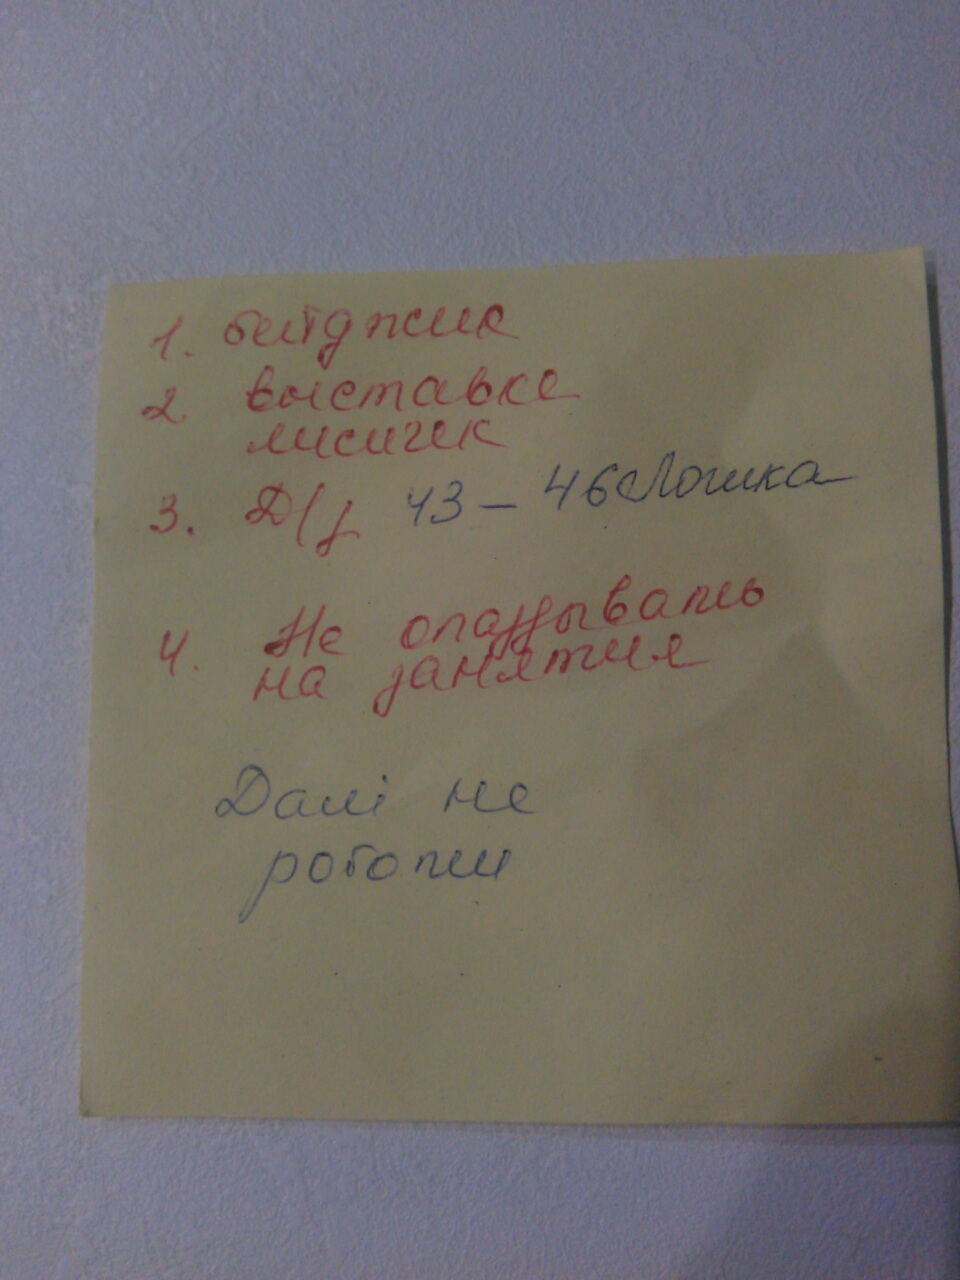 1. бейджик
2. выставке
лисичек
3. Д/з 43 – 46 Логика
4. Не опаздывать
на занятия
Далі не
роботи